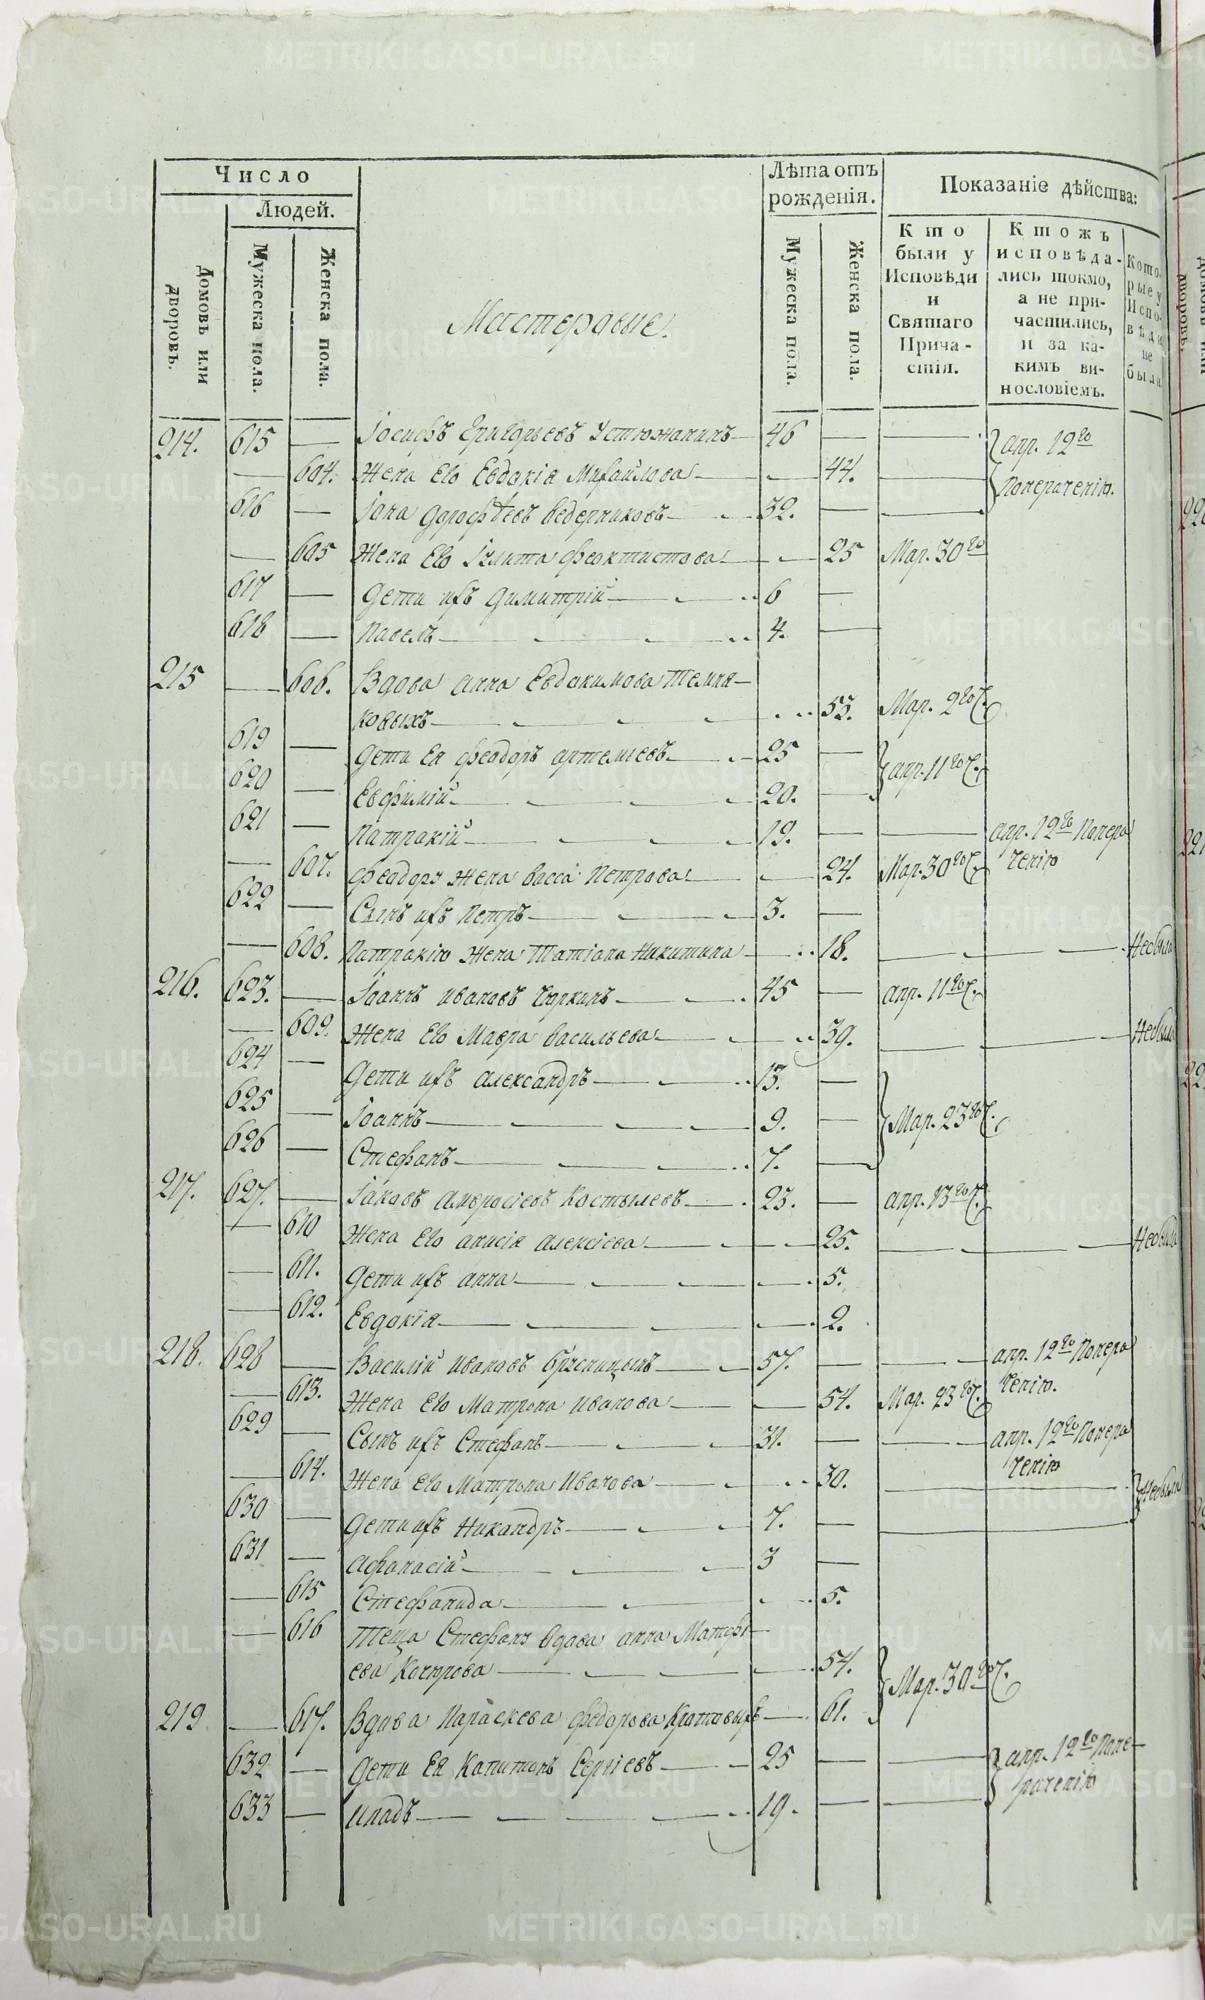 Число
Людей.
Домовъ или дворовъ.
Мужеска пола.
Женска пола.
Мастеровые.
Лѣта отъ рожденія.
Мужеска пола.
Женска пола.
Показаніе дѣйства:
Кто были у Исповѣди и Святаго Причастія.
Ктожъ исповѣдались токмо, а не причастились, и за какимъ винословіемъ.
Которые у Исповѣди не были
214. 615 — Іосифъ Григорьевъ Устюжанинъ 46 — — апр. 12го
— 604. Жена Его Евдокія Михайлова — 44. — Понерачению.
616 — Іона Дорофѣевъ Ведерниковъ 32. — —
— 605 Жена Его Іулита Феоктистова — 25 Мар. 30го
617 — Дети ихъ Димитрій 6 —
618 — Павелъ 4. —
215 — 606. Вдова Анна Евдокимова Темни-
ковыхъ 53. Мар. 2го Ч.
619 — Дети Ея Феодоръ Артемьевъ 25 — апр. 11го Ч.
620 — Евфимій 20. —
621 — Патракій 19. — — апр. 12го Понера
— 607. Феодору Жена Васса Петрова — 24. Мар. 30го Ч. чению
622 — Сынъ ихъ Петръ 3. —
— 608. Патракію Жена Татіана Никитина — 18. — — Небыла
216. 623. — Іоаннъ Ивановъ 45 — апр. 11го Ч.
— 609. Жена Его Мавра Васильева — 39. — — Небыла
624 — Дети ихъ Александръ 13. —
625 — Іоаннъ 9. — Мар. 23го Ч.
626 — Стефанъ 7. —
217. 627. — Іаковъ Амвросіевъ Костылевъ 23. — апр. 13го Ч.
— 610 Жена Его Анисія Алексіева — 25. — — Небыла
— 611. Дети ихъ Анна — 5.
— 612. Евдокія — 2.
218. 628 — Василій Ивановъ Брусницынъ 57. — — апр. 12го Понера
— 613. Жена Его Матрона Иванова — 54. Мар. 23го Ч. чению.
629 — Сынъ ихъ Стефанъ 31. — — апр. 12го Понера
чению
— 614. Жена Его Матрона Иванова — 30. — — Небыли
630 — Дети ихъ Никандръ 7. —
631 — Афанасій 3 —
— 615 Стефанида — 5.
— 616 Теща Стефану Вдова Анна Матфѣ-
ева — 54. Мар. 30го Ч.
219 — 617. Вдова Параскева Федорова Кротовыхъ — 61.
632 — Дети Ея Капитонъ Сергіевъ 25 — — апр. 12го Поне-
рачению
633 — Ипатъ 19. — —